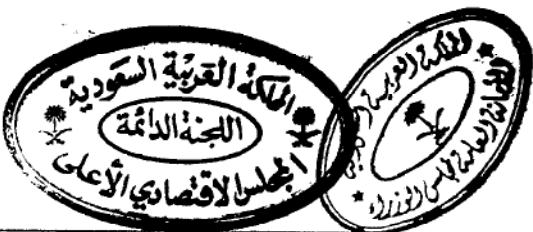 المملكة العربية السعودية
اللجنة الدائمة
المجلس الاقتصادي الأعلى
المملكة العربية السعودية
الأمانة العامة لمجلس الوزراء